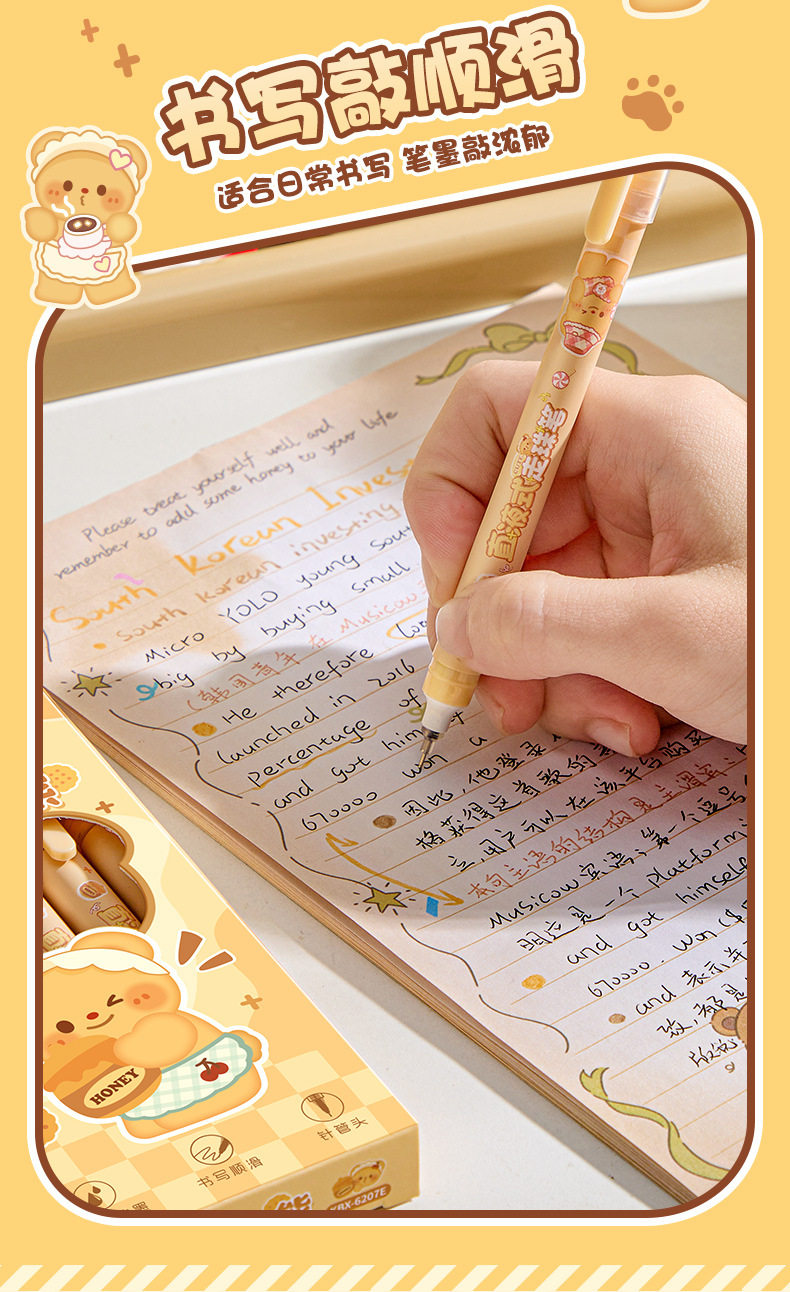 书写敲顺滑
适合日常书写 笔墨敲浓郁
直液式走珠笔
Please treat yourself well and
remember to add some honey to your life
South Korean Invest
south korean investing
Micro YOLO young sou
big by buying small
(韩国青年在 Musicow
He therefore
launched in 2016
percentage of
and got him
670000 won a
因此,他登录
格获得这首歌的
三,用户可以在该平台购买
本句主语的结构是主谓宾;
Musicow 宾语;第一个逗号
明这是一个 platform
and got himself
670000. Won ($
and 表示并
放,都是
HONEY
针管头
书写顺滑
墨
熊
KBX-6207E